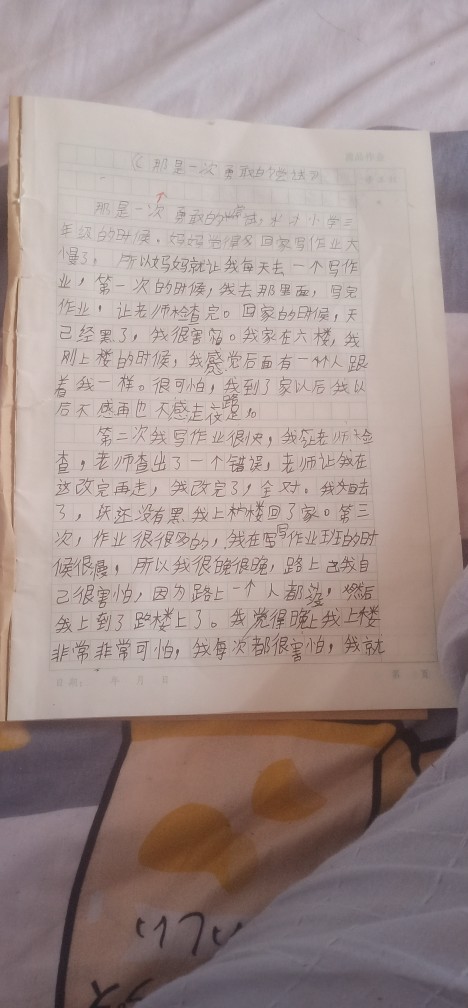 《那是一次勇敢的尝试》
那是一次勇敢的尝试，小学三
年级的时候，妈妈觉得我回家写作业太
慢了，所以妈妈就让我每天去一个写作
业，第一次的时候，我去那里面，写完
作业，让老师检查完。回家的时候，天
已经黑了，我很害怕。我家在六楼，我
刚上楼的时候，我感觉后面有一个人跟
着我一样。很可怕，我到了家以后我以
后不感再也不感走夜路了。
第二次我写作业很快，我让老师检
查，老师查出了一个错误，老师让我在
这改完再走，我改完了，全对。我回去
了，天还没有黑我上楼回了家。第三
次，作业很很多的，我在写作业班的时
候很慢，所以我很晚很晚，路上我自
己很害怕，因为路上一个人都没，然后
我上到了楼上了。我觉得晚上我上楼
非常非常可怕，我每次都很害怕，我就
日期： 年 月 日
第 页